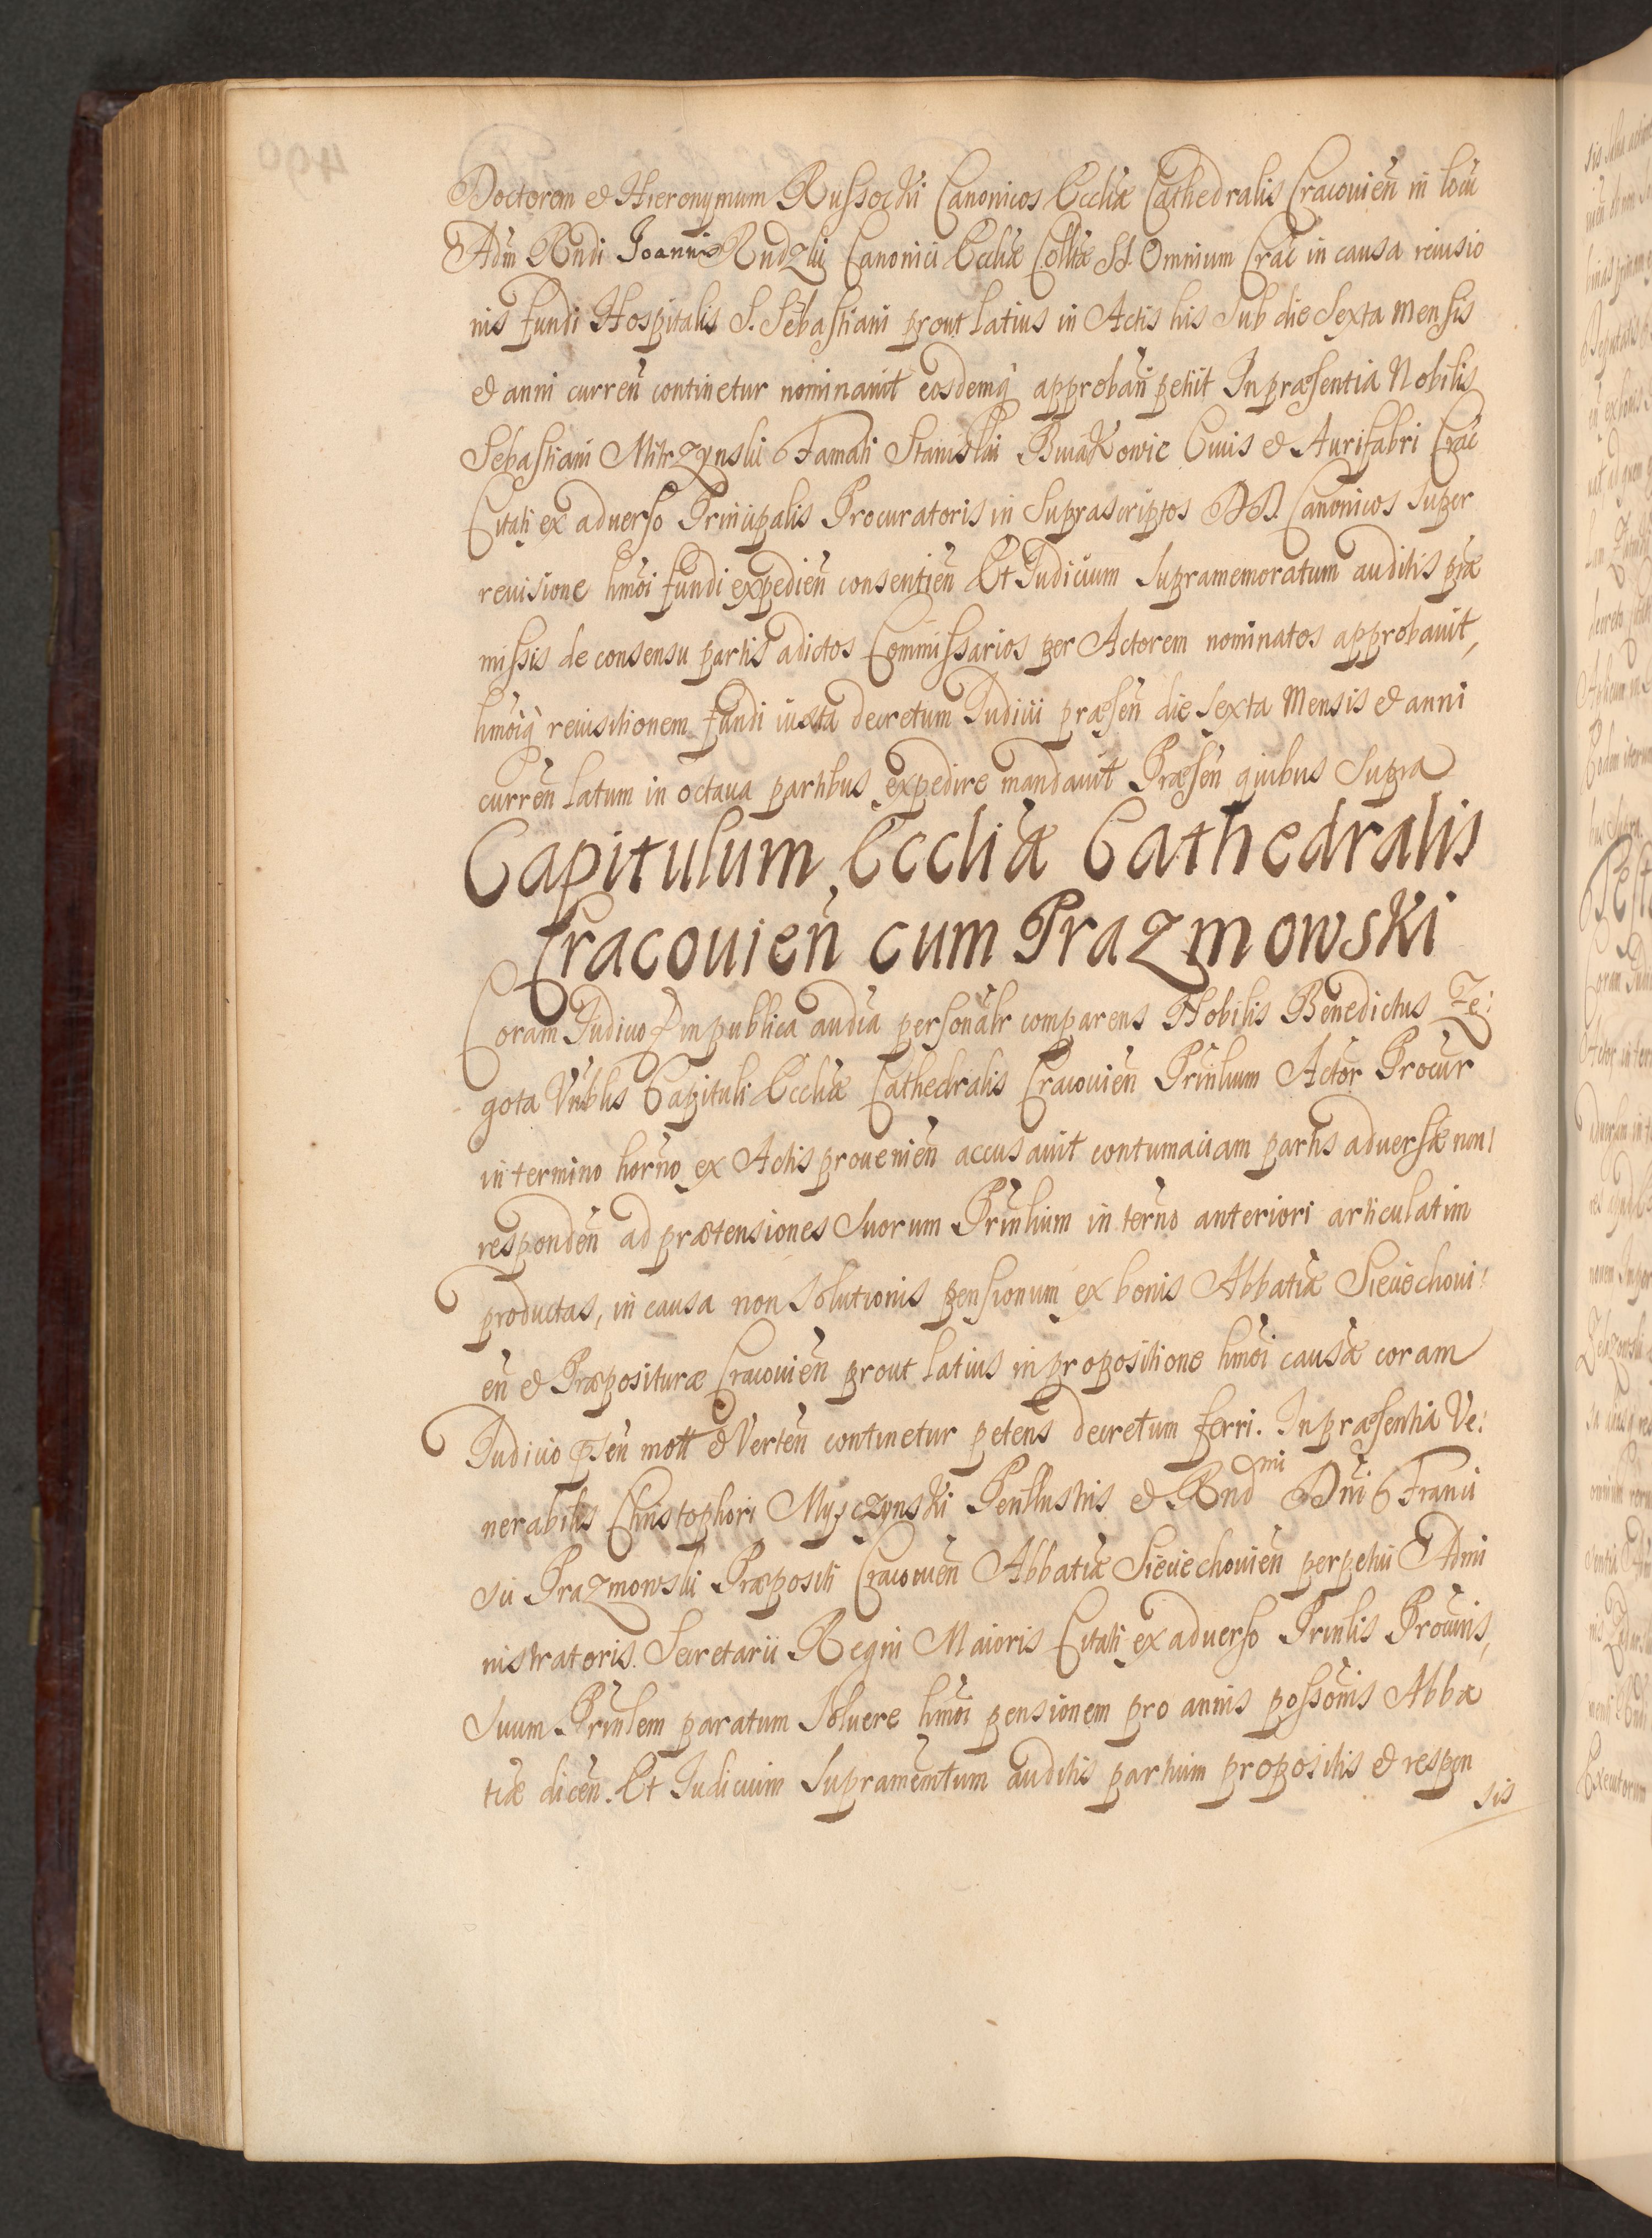 Doctorem & Hieronymum Russocki Canonicos Eccliæ Cathedralis Cracouieñ in locũ
Adm Rndi Joannis Rudzki Canonici Eccliæ Colltæ SS. Omnium Crac̃ in causa reuisio
nis fundi Hospitalis S. Sebastiani prout latius in Actis his sub die sexta mensis
& anni curreñ continetur nominauit eosdemq̃ approbari petiit In præsentia Nobilis
Sebastiani Mitrzynski Famati Stanislai Ciuis & Aurifabri Crac̃
Citati ex aduerso Principalis Procuratoris in suprascriptos DD. Canonicos super
reuisione hmõi fundi expedieñ consentieñ Et Judicium supramemoratum auditis præ
missis de consensu partis adictos Commissarios per Actorem nominatos approbauit,
hmõiq̃ reuisitionem fundi iuxta decretum Judicii præseñ die sexta Mensis & anni
curreñ latum in octaua partibus expedire mandauit Præseñ quibus supra
Capitulum Eccliæ Cathedralis
Cracouieñ cum Prazmowski
Coram Judicio in publica audia personalr comparens Nobilis Benedictus Ze:
gota Vnblis Capituli Eccliæ Cathedralis Cracouieñ Prinlium Actor Procur
in termino horno ex Actis prouenieñ accusauit contumaciam partis aduersæ non
respondeñ ad prætensiones suorum Prinlium in terño anteriori articulatim
productas, in causa non solutionis pensionum ex bonis Abbatiæ Sieciechoui:
eñ & Præposituræ Cracouieñ prout latius in propositione hmõi causæ coram
Judicio pseñ mott & Verteñ continetur petens decretum ferri. In præsentia Ve:
nerabilis Christophori Mysczynski Perillustris & Rndmi Dni Franci
sci Prazmowski Præpositi Cracouieñ Abbatiæ Sieciechouieñ perpetui Admi
nistratoris Secretarii Regni Maioris Citati ex aduerso Prinlis Procuris,
suum Prinlem paratum soluere hmõi pensionem pro annis possõnis Abba
tiæ diceñ. Et Judicium supramemtum auditis partium propositis & respon
sis